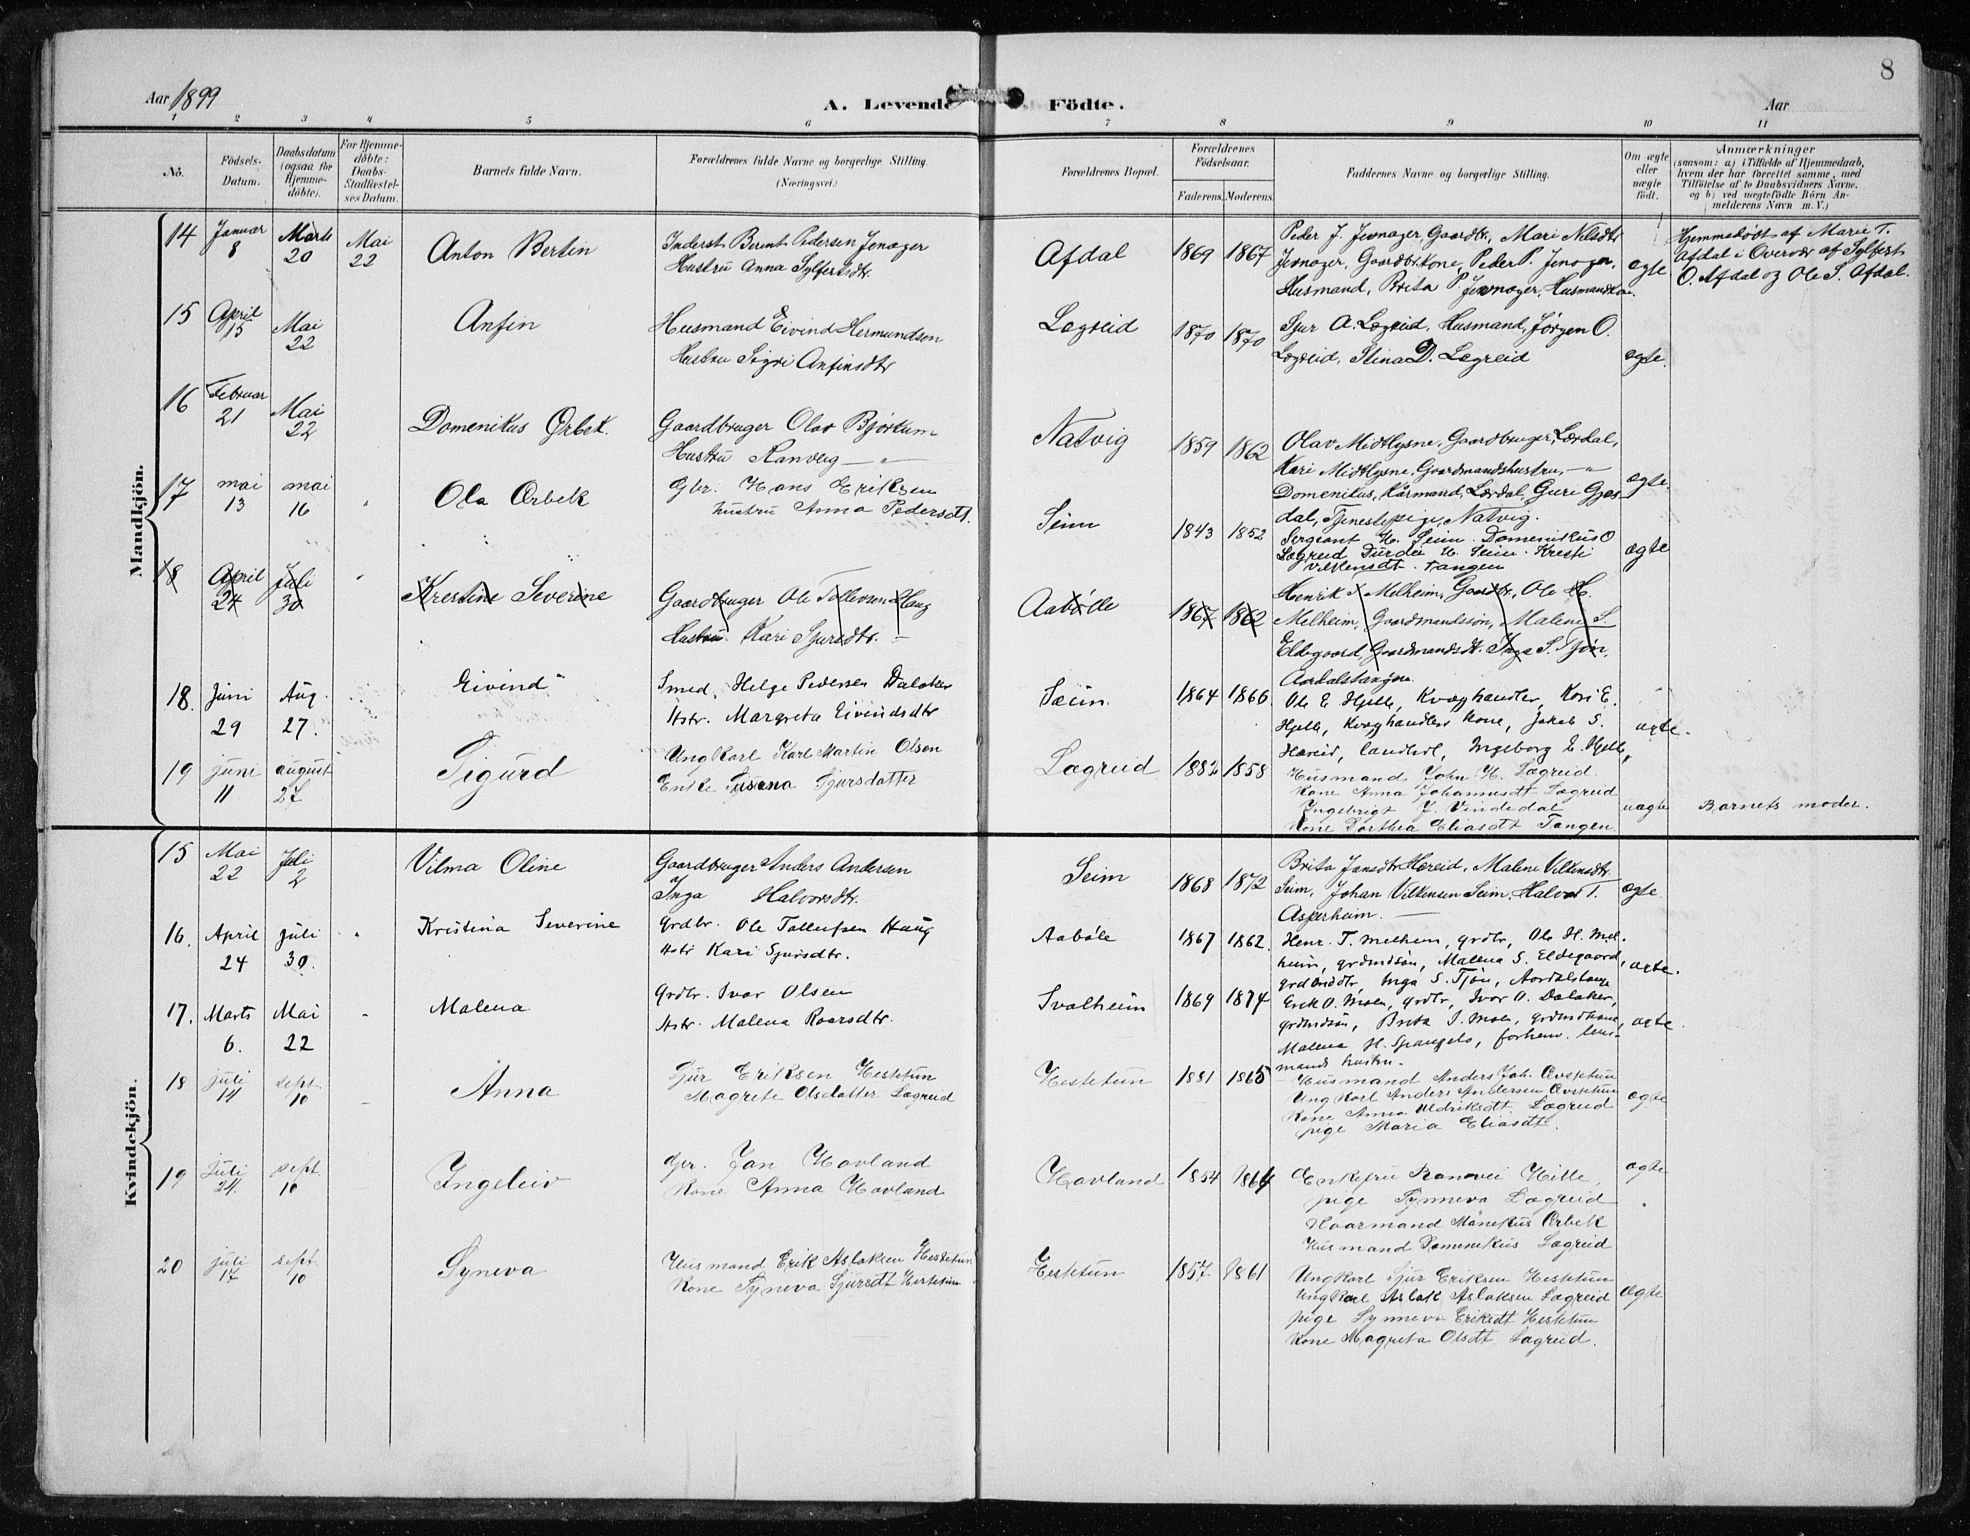 8
Aar 1899
A. Levende Födte.
Aar
1 2 3 4 5 6 7 8 9 10 11
No.
Födsels-Datum.
Daabsdatum (ogsaa for Hjemme-döbte).
For Hjemme-döbte: Daabs-Stadfæstel-ses Datum.
Barnets fulde Navn.
Forældrenes fulde Navne og borgerlige Stilling. (Næringsvei.)
Forældrenes Bopæl.
Forældrenes Födselsaar.
Faderens. Moderens.
Faddernes Navne og borgerlige Stilling.
Om ægte eller uægte födt.
Anmærkninger
(saasom: a) i Tilfælde af Hjemmedaab, hvem der har forrettet samme, med Tilföielse af to Daabsvidners Navne, og b) ved uægtefödte Börn An-melderens Navn m. V.)
Mandkjön.
14 Januar 8 Marts 20 Mai 22 Anton Bertin
Inderst Bernt Pedersen Jevnager
Hustru Anna Sylfestsdtr.
Afdal 1869 1867
Peder J. Jevnager Gaardbr., Mari Nilsdtr
Jevnager, Gaardbr.kone, Peder P. Jevnager,
Husmand, Brita P. Jevnager, Husmandskone.
ægte
Hjemmedøbt af Marie T.
Afdal i Overvær af Sylfest
O. Afdal og Ole S. Afdal.
15 April 15 Mai 22 Anfin
Husmand Eivind Hermundsen
Hustru Sigri Anfinsdtr
Lægreid 1870 1870
Sjur A. Lægreid, Husmand, Jørgen O.
Lægreid, Stina D. Lægreid
ægte.
16 Februar 21 Mai 22 Domenikus Ørbek.
Gaardbruger Olav Bjørkum
Hustru Ranveig — „
Natvig 1859 1862
Olav Midtlysne, Gaardbruger, Lærdal,
Kari Midtlysne, Gaardmandshustru, — „
Domenikus, Kårmand, Lærdal, Guri Gjes-
dal, Tjenestepige, Natvig.
ægte
17 mai 13 mai 16 Ola Ørbek
Gbr. Hans Eriksen
hustru Anna Pedersdt.
Seim 1843 1852
Sergeant H. Seim. Domenikus O
Lægreid Durdei H. Seim. Kresti
Vilkensdt. Tangen
ægte
18 April 24 Juli 30 Krestine Severine
Gaardbruger Ole Tollevsen Haug
Hustru Kari Sjursdtr. —
Aabøle 1867 1862
Henrik T Melheim, Gaardbr, Ole H.
Melheim, Gaardmandssøn, Malene S.
Eldegaard, Gaardmandsdt. Inga S. Tjön,
Aardalstangen
18. Juni 29 Aug. 27. Eivind
Smed, Helge Pedersen Dalaker
Hstr. Margreta Eivindsdtr
Seim. 1864 1866
Ole E Hjelle, Kvæghandler, Kari E.
Hjelle, Kvæghandlers kone, Jakob S.
Hæreid, landhdl, Ingeborg E. Hjelle,
ægte.
19 juni 11 august 27 Sigurd
Ungkarl Karl Martin Olsen
Enke Susana Sjursdatter
Lægreid 1882 1858
Husmand John H. Lægreid
Kone Anna Johannesdt Lægreid
Ingebrigt J. Vindedal
Kone Dorthea Eliasdt Tangen
uægte
Barnets moder.
Kvindekjön.
15 Mai 22 Juli 2 Vilma Oline
Gaardbruger Anders Andersen
Inga Halvorsdtr.
Seim 1868 1872
Brita Jansdtr Hereid, Malene Vilkensdtr
Seim, Johan Vilkensen Seim, Halvor T.
Asperheim. —
ægte.
16. April 24 juli 30. Kristina Severine
Grdbr. Ole Tollefsen Haug
Hstr Kari Sjursdtr.
Aabøle 1867 1862.
Henr. T. Melheim, grdbr, Ole H. Mel-
heim, grdmdsøn, Malena S. Eldegaard,
grdmddtr, Inga S. Tjön, Aardalstangen
ægte.
17. Marts 6. Mai 22 Malena
Grdbr. Ivar Olsen
Hstr. Malena Roarsdtr.
Svalheim 1869 1874
Erik O. Moen, grdbr, Ivar O. Dalaker,
grdmdsøn, Brita I. Moen, grdmdkone,
Malena H. Spangelo, forhenv. lens-
mands hustru.
ægte.
18 juli 14 sept. 10 Anna
Sjur Eriksen Hestetun
Magrete Olsdatter Lægreid
Hestetun 1881 1865
Husmand Anders Joh. Øvstetun
Ungkarl Anders Andersen Øvstetun
Kone Anna Uldriksdt Lægreid
pige Maria Eliasdt.
ægte
19 Juli 24. sept. 10 Ingeleiv
Gbr. Jan Hovland
Kone Anna Hovland
Hovland 1854 1864
Enkefru Ranvei Hille,
pige Synneva Lægreid
Kaarmand Månekus Ørbek
Husmand Domenikus Lægreid
ægte
20 juli 17 sept. 10 Syneva
Husmand Erik Aslaksen Hestetun
Kone Syneva Sjursdt Hestetun
Hestetun 1857 1861
Ungkarl Sjur Eriksen Hestetun
Ungkarl Aslak Aslaksen Lægreid
pige Synneva Eriksdt Hestetun
Kone Magreta Olsdt Lægreid.
ægte